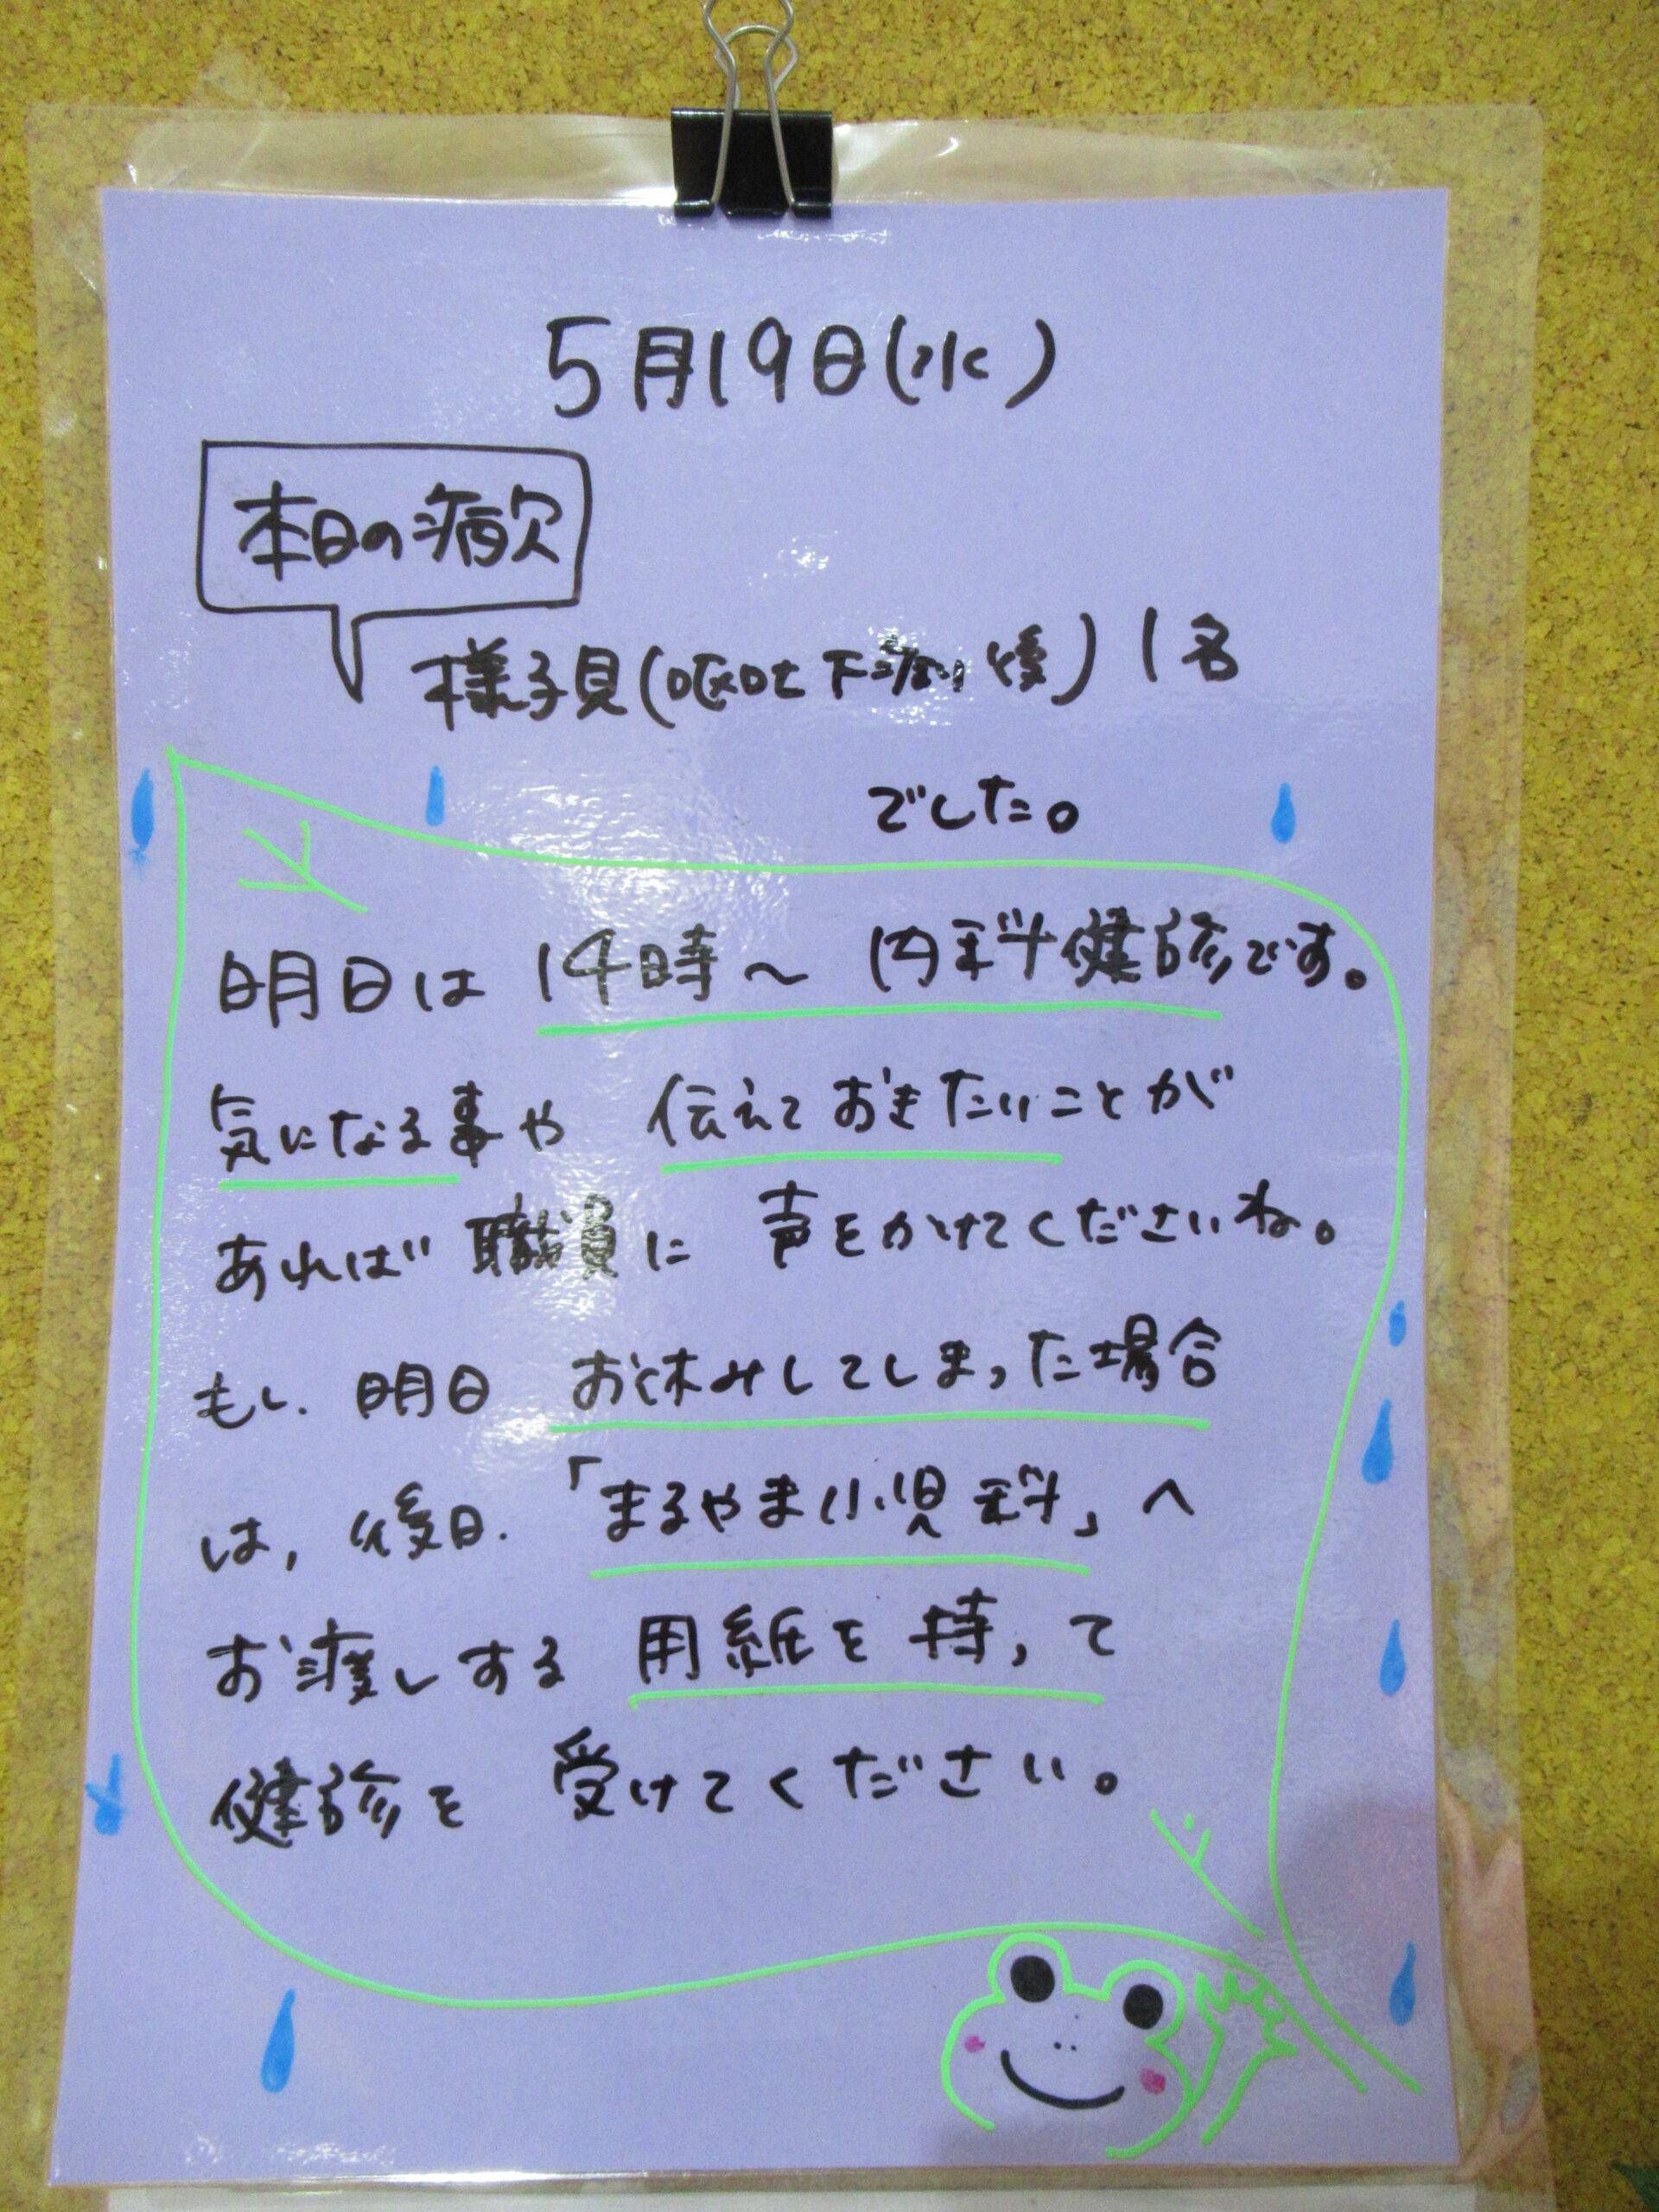 5月19日(水)
本日の病欠
様子見(嘔吐下痢後)1名
でした。
明日は 14時～ 内科健診です。
気になる事や 伝えておきたいことが
あれば 職員に 声をかけてくださいね。
もし、明日 お休みしてしまった場合
は、後日、「まるやま小児科」へ
お渡しする 用紙を持って
健診を 受けてください。